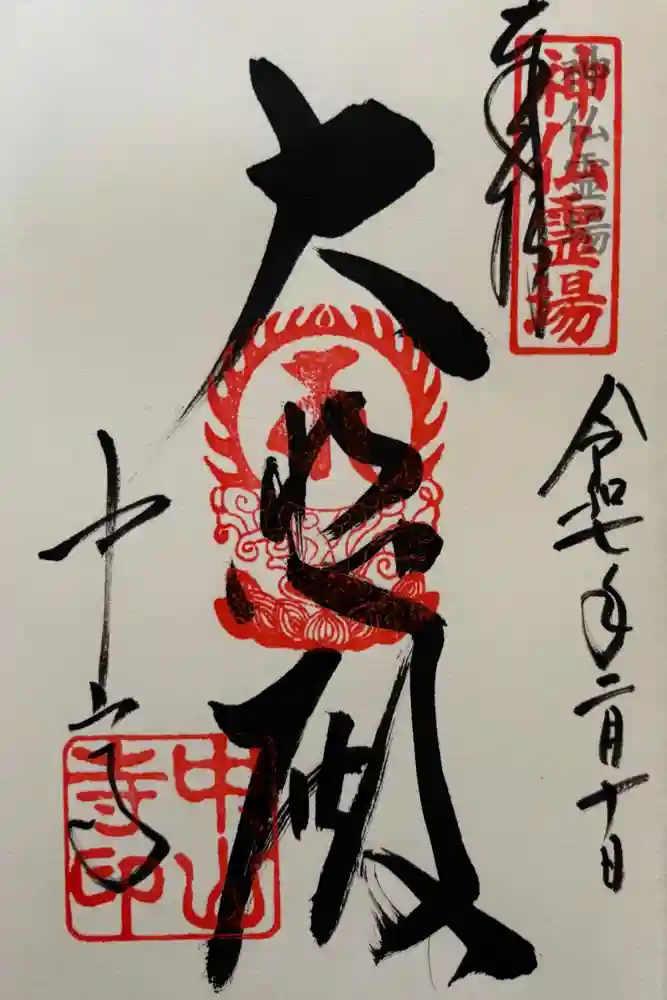 奉拝
神仏霊場
令和七年二月十日
大悲殿
中山寺
中山
寺印